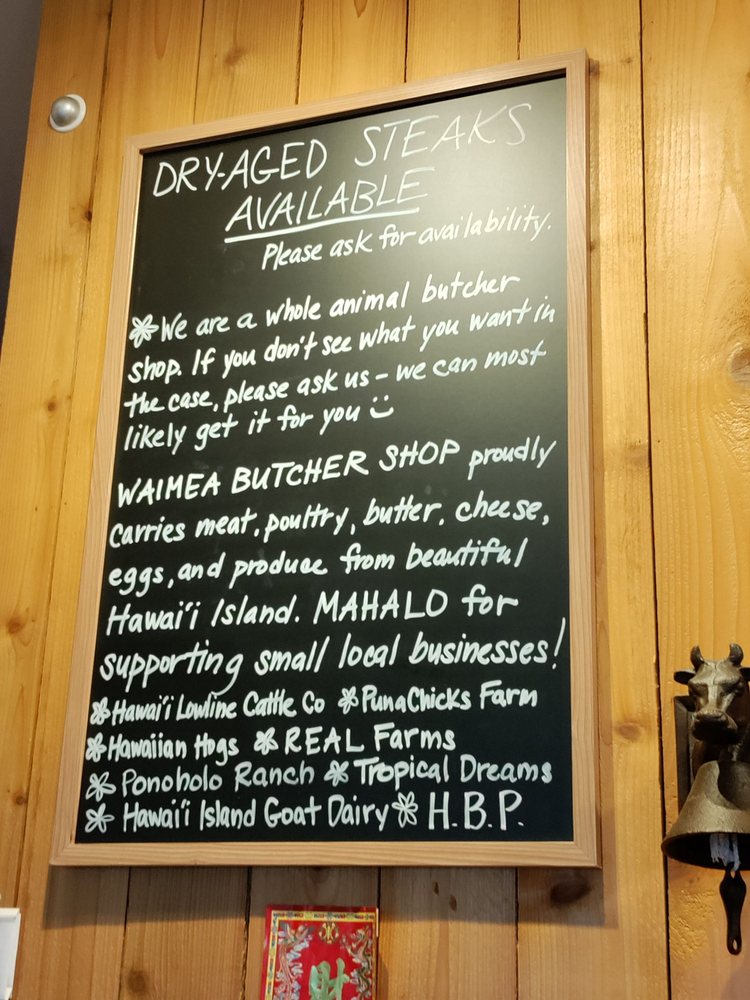 DRY-AGED STEAKS
AVAILABLE
Please ask for availability.
We are a whole animal butcher
shop. If you don't see what you want in
the case, please ask us - we can most
likely get it for you
WAIMEA BUTCHER SHOP proudly
carries meat, poultry, butter, cheese,
eggs, and produce from beautiful
Hawai'i Island. MAHALO for
supporting small local businesses!
Hawai'i Lowline Cattle Co PunaChicks Farm
Hawaiian Hogs REAL Farms
Ponoholo Ranch Tropical Dreams
Hawai'i Island Goat Dairy H.B.P.
財